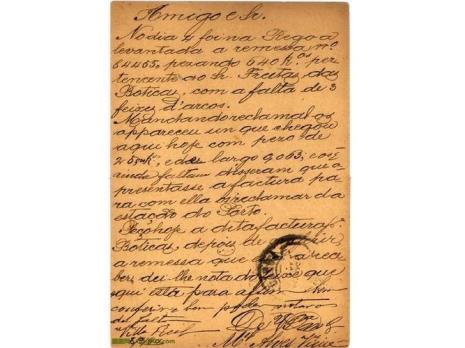 Amigo e Sr.
No dia 2 foi na Regoa
levantada a remessa nº
64455, pezando 640 k.os, per
tencente ao Sr. Freitas, das
Boticas, com a falta de 3
feixes d'arcos.
Manchando reclamal-os
appareceu un que chegou
aqui hoje com pezo de
25 0k, e de largo 0,063;
ainda faltam disseram que a
presentasse a factura pa
ra com ella reclamar da
estação do Porto.
hoje a dita factura
Boticas, depois de
a remessa que a
ber, dei-lhe nota do feixe que
aqui está para
bem pode
a falta
Villa Real
De V.